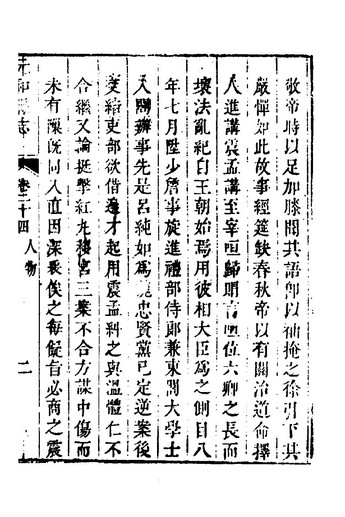 敬帝時以足加膝間其語卽以袖掩之徐引下其
嚴憚如此故事經筵缺春秋帝以有關治道命擇
人進講震孟講至宰咺歸賵言咺位六卿之長而
壞法亂紀自王朝始焉用彼相大臣為之側目八
年七月陞少詹事旋進禮部侍郎兼東閣大學士
入閣辦事先是呂純如為魏忠賢黨已定逆案後
交結吏部欲借邊才起用震孟糾之與溫體仁不
合繼又論挺擊紅丸移宮三案不合方謀中傷而
未有隙旣同入直因深畏俟之每擬旨必商之震
元和縣志
卷二十四 人物
二